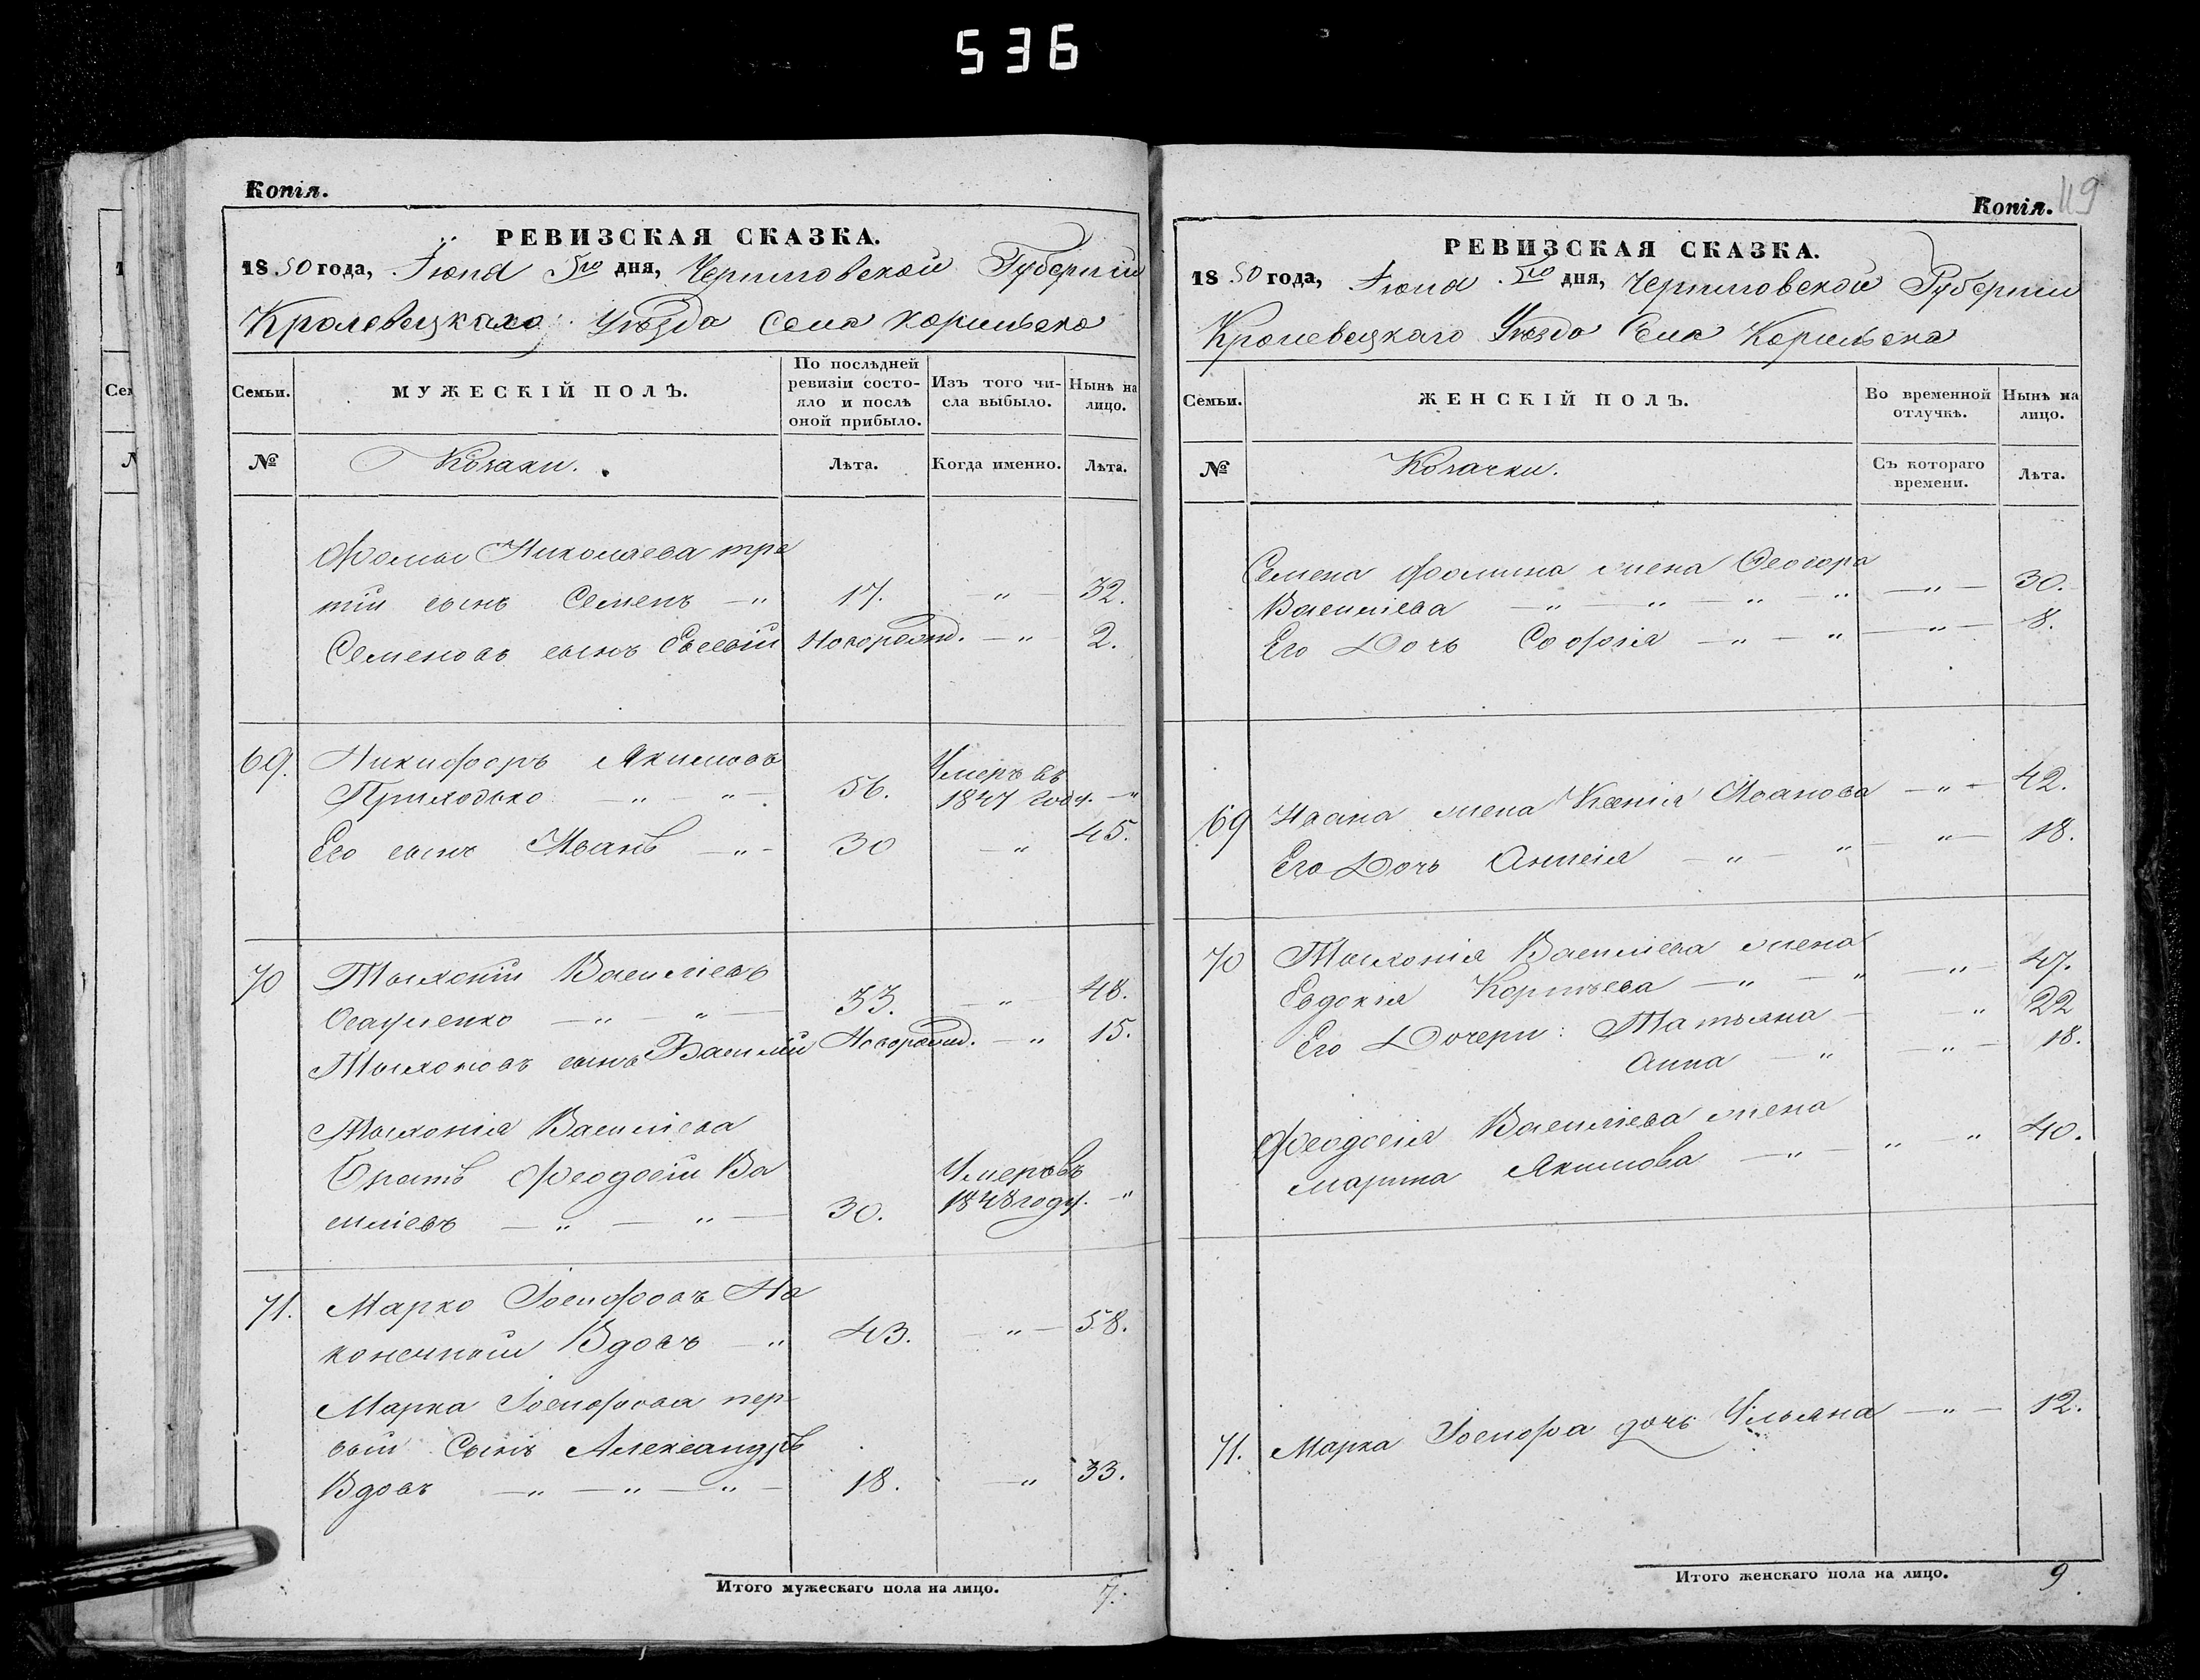 536
Копія.
РЕВИЗСКАЯ СКАЗКА.
1850 года, Іюня 5го дня, Черниговской Губерніи
Кролевецкаго Уѣзда Села Корильска
Семьи.
МУЖЕСКІЙ ПОЛЪ.
По послѣдней ревизіи состояло и послѣ оной прибыло.
Изъ того числа выбыло.
Нынѣ на лицо.
№
Козаки.
Лѣта.
Когда именно.
Лѣта.
Фомы Николаева тре
тій сынъ Семенъ — " 17. — " — 32.
Семеновъ сынъ Евсевій Новорожд. — " — 2.
69. Никифоръ Якимовъ
Приходько — " — " — 56. Умеръ въ 1847 году. — "
Его сынъ Иванъ — " — 30 — " 45.
70 Тихоній Василіевъ
Осауленко — " — " — 33. — " — 48.
Тихоновъ сынъ Василій Новорожд. — " 15.
Тихонія Василіева
Братъ Феодосій Ва
силіевъ — " — " — 30. Умеръ въ 1848 году. — "
71. Марко Іосифовъ На
конечный Вдовъ — " 43. — " — 58.
Марка Іосифова пер-
вый Сынъ Александръ
Вдовъ — " — " — " — 18. — " 33.
Итого мужескаго пола на лицо. 7.
Копія. 119
РЕВИЗСКАЯ СКАЗКА.
1850 года, Іюня 5го дня, Черниговской Губерніи
Кролевецкаго Уѣзда Села Корильска
Семьи.
ЖЕНСКІЙ ПОЛЪ.
Во временной отлучкѣ.
Нынѣ на лицо.
№
Козачки.
Съ котораго времени.
Лѣта.
Семена Фомина жена Феодора
Василіева — " — " — " — " — " — 30.
Его Дочь Софія — " — " — " — 8.
69 Ивана жена Ксенія Иванова — " — 42.
Его Дочь Анисія — " — " — " — 18.
70 Тихонія Василіева жена
Евдокія Корнѣева — " — " — " — 47.
Его Дочери: Татьяна — " 22
Анна — " — " — 18.
Феодосія Василіева жена
Марина Якимова — " — " — " 40.
71. Марка Іосифа дочь Ульяна — " — 12.
Итого женскаго пола на лицо. 9